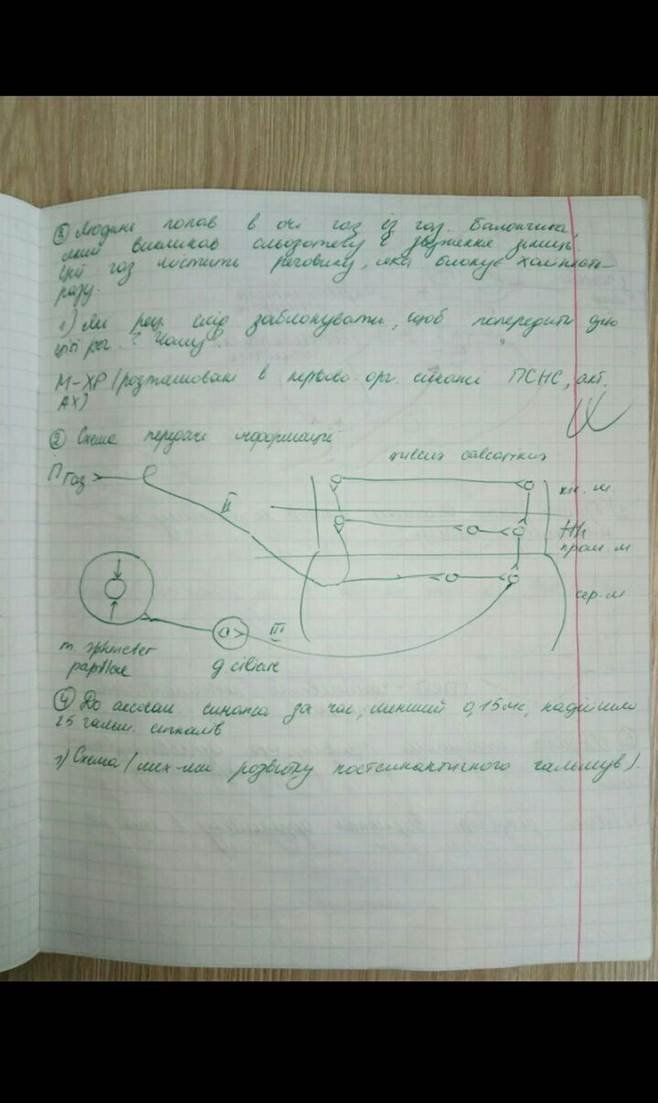 ③ Людині попав в очі газ із газ. балончика,
який викликав сльозотечу і звуження зіниць
цей газ містить речовину, яка блокує холінесте-
разу.
1) Які рец. слід заблокувати, щоб попередити дію
цієї реч.? Чому?
М-ХР (розташовані в нервово-орг. синапсі ПСНС, акт.
АХ)
② Схема передачі інформації
П газ
II
кін. м.
пром. м
сер. м
III
m. sphincter
papillae
g. ciliare
④ До аксосом. синапса за час, менший 0,15 мс, надійшло
25 гальм. сигналів
2) Схема (мех-ми розвитку постсинаптичного гальмув.).